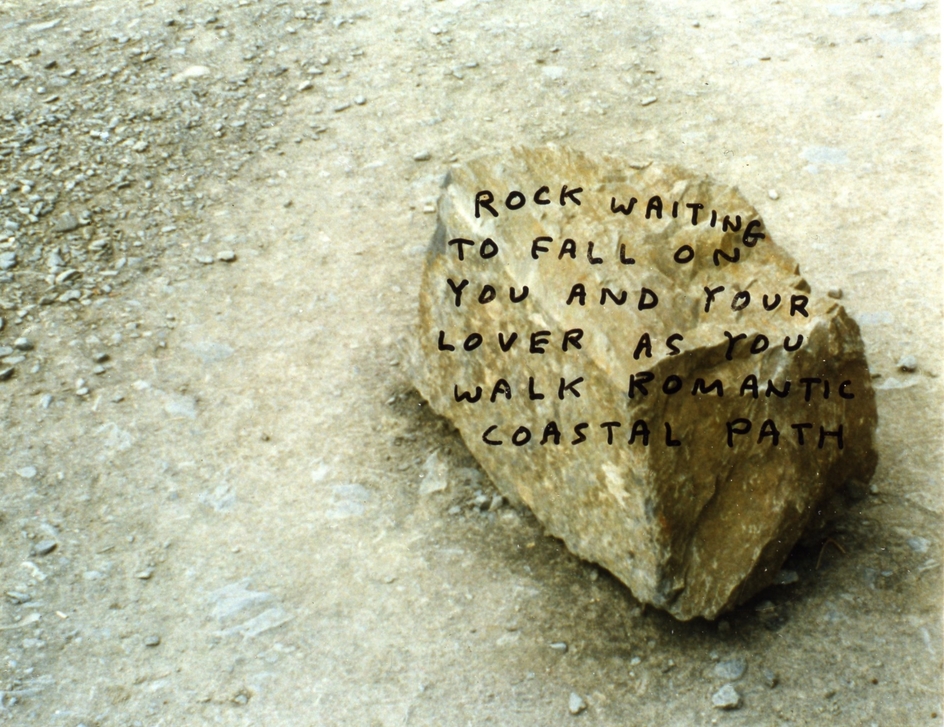 ROCK WAITING
TO FALL ON
YOU AND YOUR
LOVER AS YOU
WALK ROMANTIC
COASTAL PATH